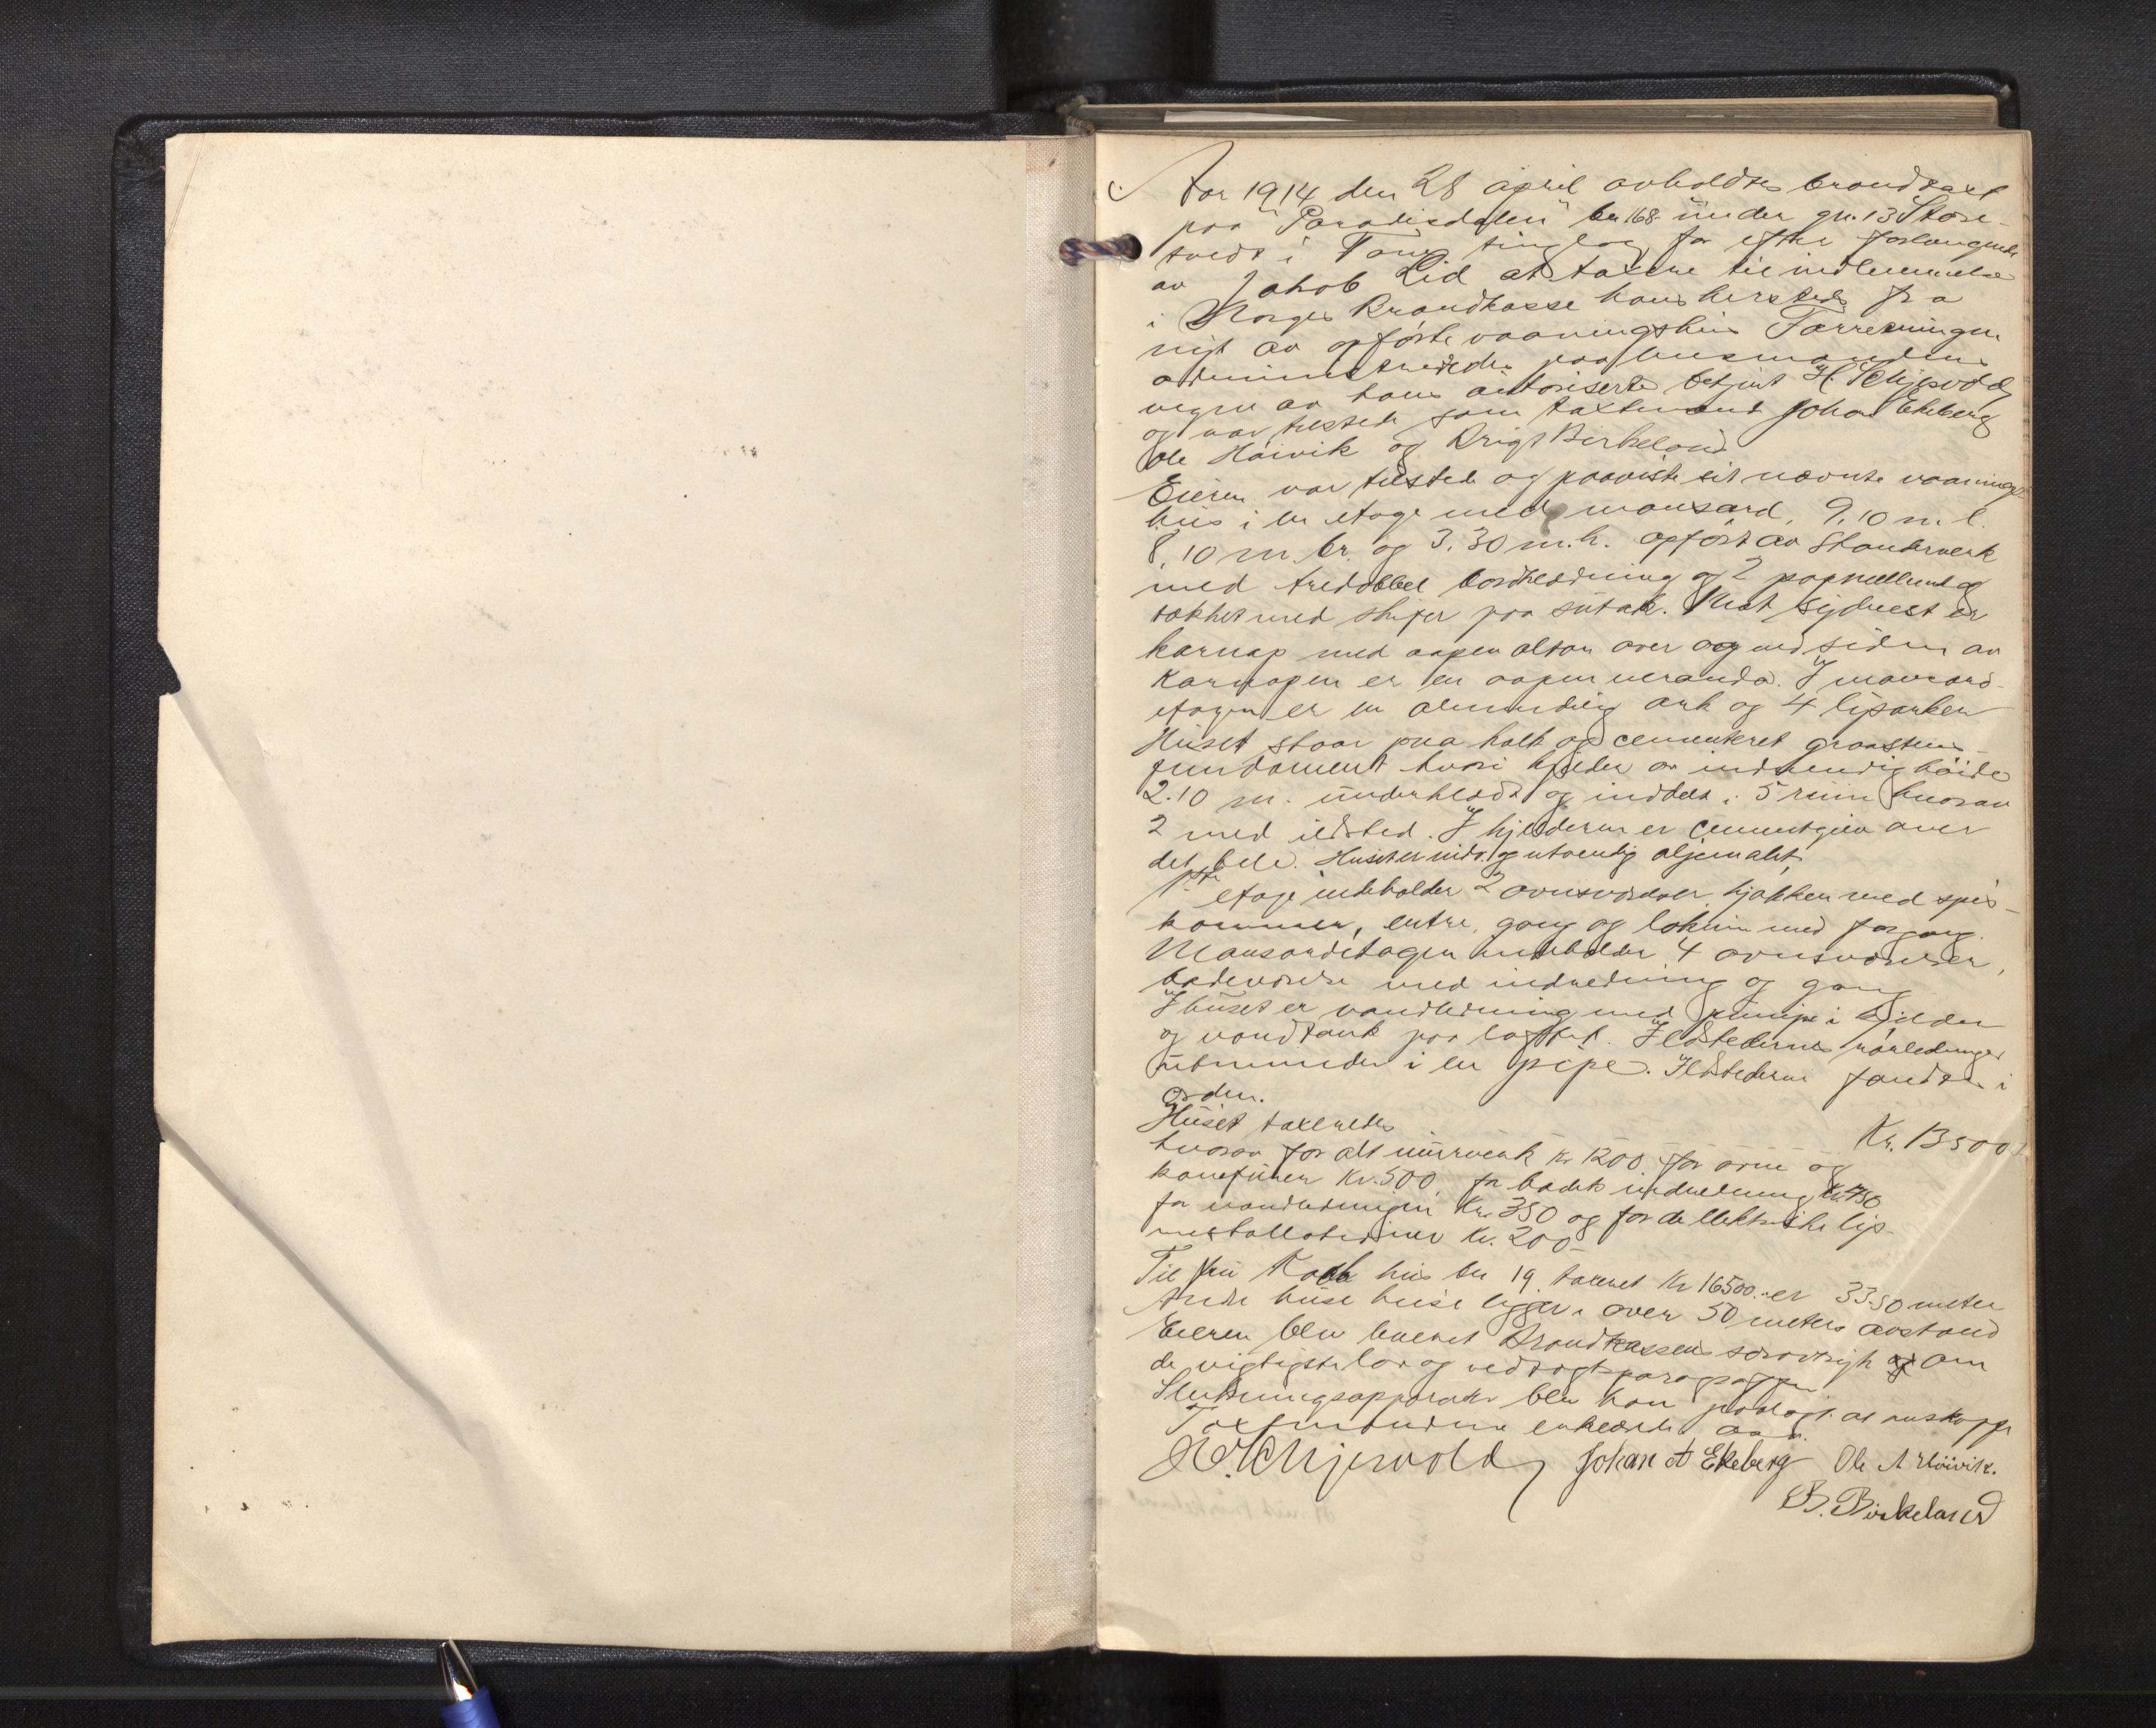 Aar 1914 den 28 april avholdtes brandtaxt
paa "Paradisdalen" bn 168 under gn. 13 Store-
tvedt i Fane tinglag for efter forlangende
av Jakob Lid at taxere til indlemmelse
i Norges Brandkasse hans hersteds fra
nyt av opførte vaaningshus Forretningen
administreredes paa lensmandens
vegne av hans autoriserte betjent H. Schjervold
og var tilstede som taxtmænd Johan Ekeberg
Ole Høivik og Brigt Birkeland
Eieren var tilstede og paaviste sit nævnte vaanings
hus i en etage med mansard, 9,10 m. l.
8,10 m. br. og 3,30 m. h. opført av standerverk
med tredobbel bordklædning og 2 papmellemlag
tækket med skifer paa sutak. Mot sydvest er
karnap med aapen altan over og ved siden av
karnapen er en aapen veranda. I mansard-
etagen er en almindelig ark og 4 lysarker
Huset staar paa kalk og cementeret graastens-
fundament hvori kjelder av indvendig høide
2.10 m. underklædt og inddelt i 5 rum hvorav
2 med ildsted. I kjelderen er cementgulv over
det hele. Huset er indv. og utvendig oljemalt.
1ste etage indeholder 2 ovnsværelser, kjøkken med spis-
kammer, entre, gang og lokum med forgang.
Mansardetagen indeholder 4 ovnsværelser,
badeværelse med indredning og gang
I huset er vandledning med pumpe i kjelder
og vandtank paa loftet. Ildstedernes rørledninger
utmunder i en pipe. Ildstederne fandtes i
orden.
Huset taxeredes Kr. 13500
hvorav for alt murverk Kr 1200. for ovne og
komfurer Kr. 500 for badets indredning Kr. 450
for vandledningen Kr. 350 og for de elektriske lys-
installationer Kr. 200-
Til fru hus bn 19 taxeret Kr 16500.- er 33.50 meter
Andre huse ligger i over 50 meters avstand
Eieren blev levert Brandkassens særtryk om
de vigtigste lov og vedtægtsparagrafer.
Slukningsapparater blev han paalagt at anskaffe
Taxtmændene enkrævede
H. Schjervold Johan A Ekeberg Ole A Høivik.
B. Birkeland